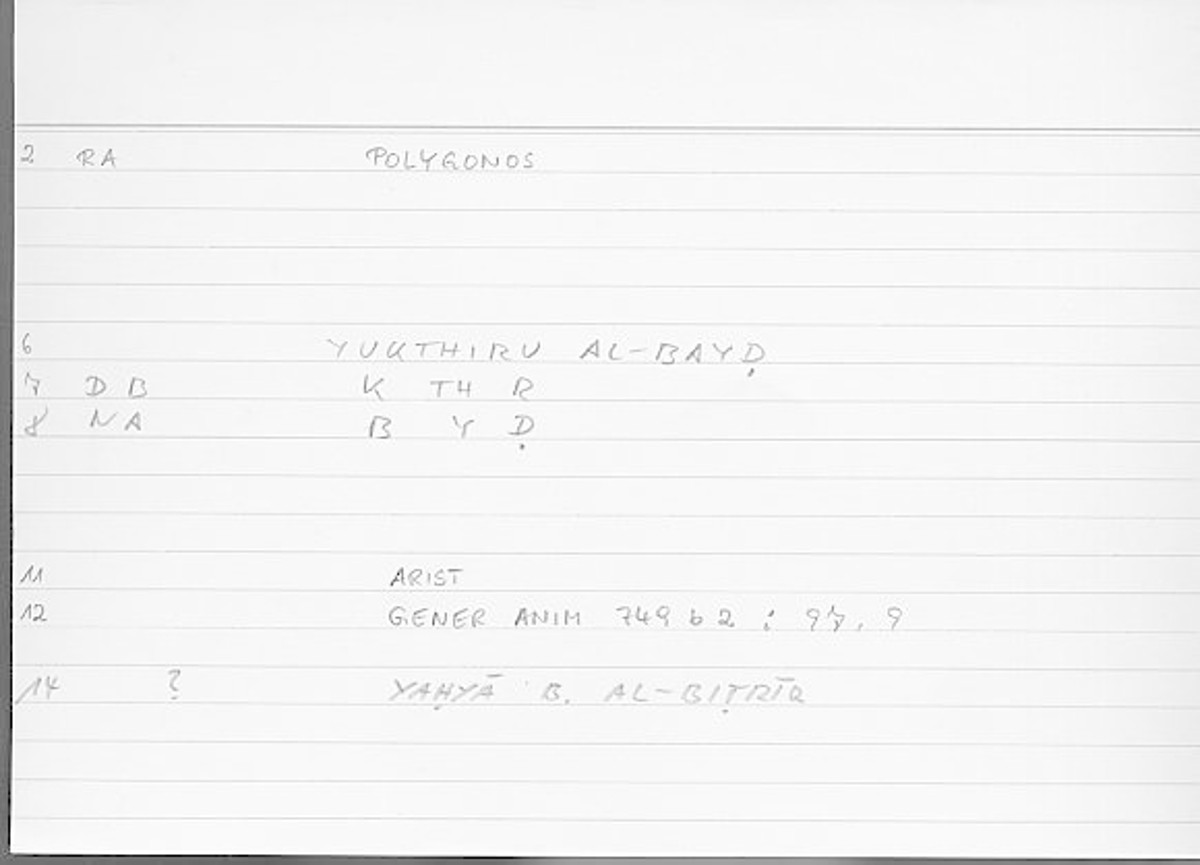 2 RA POLYGONOS
6 YUKTHIRU AL-BAYḌ
7 D B K TH R
8 NA B Y Ḍ
11 ARIST
12 GENER ANIM 749 b 2 ; 97, 9
14 ? YAḤYĀ B. AL-BIṬRĪQ